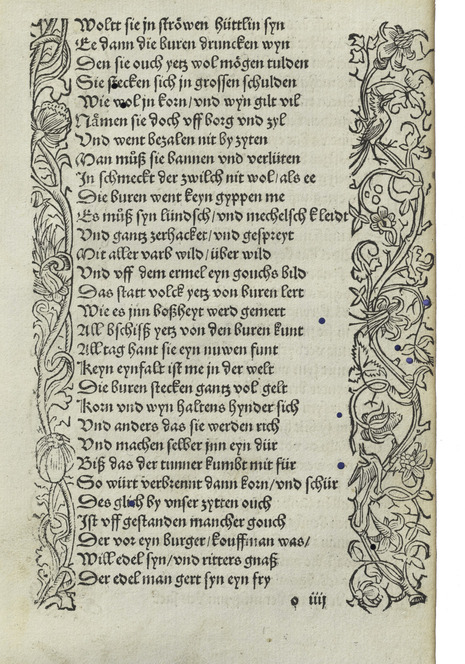 Woltt sie jn ströwen hüttlin syn
Ee dann die buren druncken wyn
Den sie ouch yetz wol mögen tulden
Sie stecken sich in grossen schulden
Wie wol jn korn/vnd wyn gilt vil
Nämen sie doch vff borg vnd zyl
Vnd went bezalen nit by zyten
Man můß sie bannen vnd verlüten
In schmeckt der zwilch nit wol/als ee
Die buren went keyn gyppen me
Es můß syn lündsch/vnd mechelsch kleidt
Vnd gantz zerhacket/vnd gespreyt
Mit aller varb wild/über wild
Vnd vff dem ermel eyn gouchs bild
Das statt volck yetz von buren lert
Wie es jnn boßheyt werd gemert
All bschisß yetz von den buren kunt
All tag hant sie eyn nuwen funt
Keyn eynfalt ist me in der welt
Die buren stecken gantz vol gelt
Korn vnd wyn haltens hynder sich
Vnd anders das sie werden rich
Vnd machen selber jnn eyn dür
Biß das der tunner kumbt mit für
So würt verbrennt dann korn/vnd schür
Des glich by vnser zytten ouch
Ist vff gestanden mancher gouch
Der vor eyn burger/kouffman was/
Will edel syn/vnd ritters gnaß
Der edel man gert syn eyn fry
o iiij